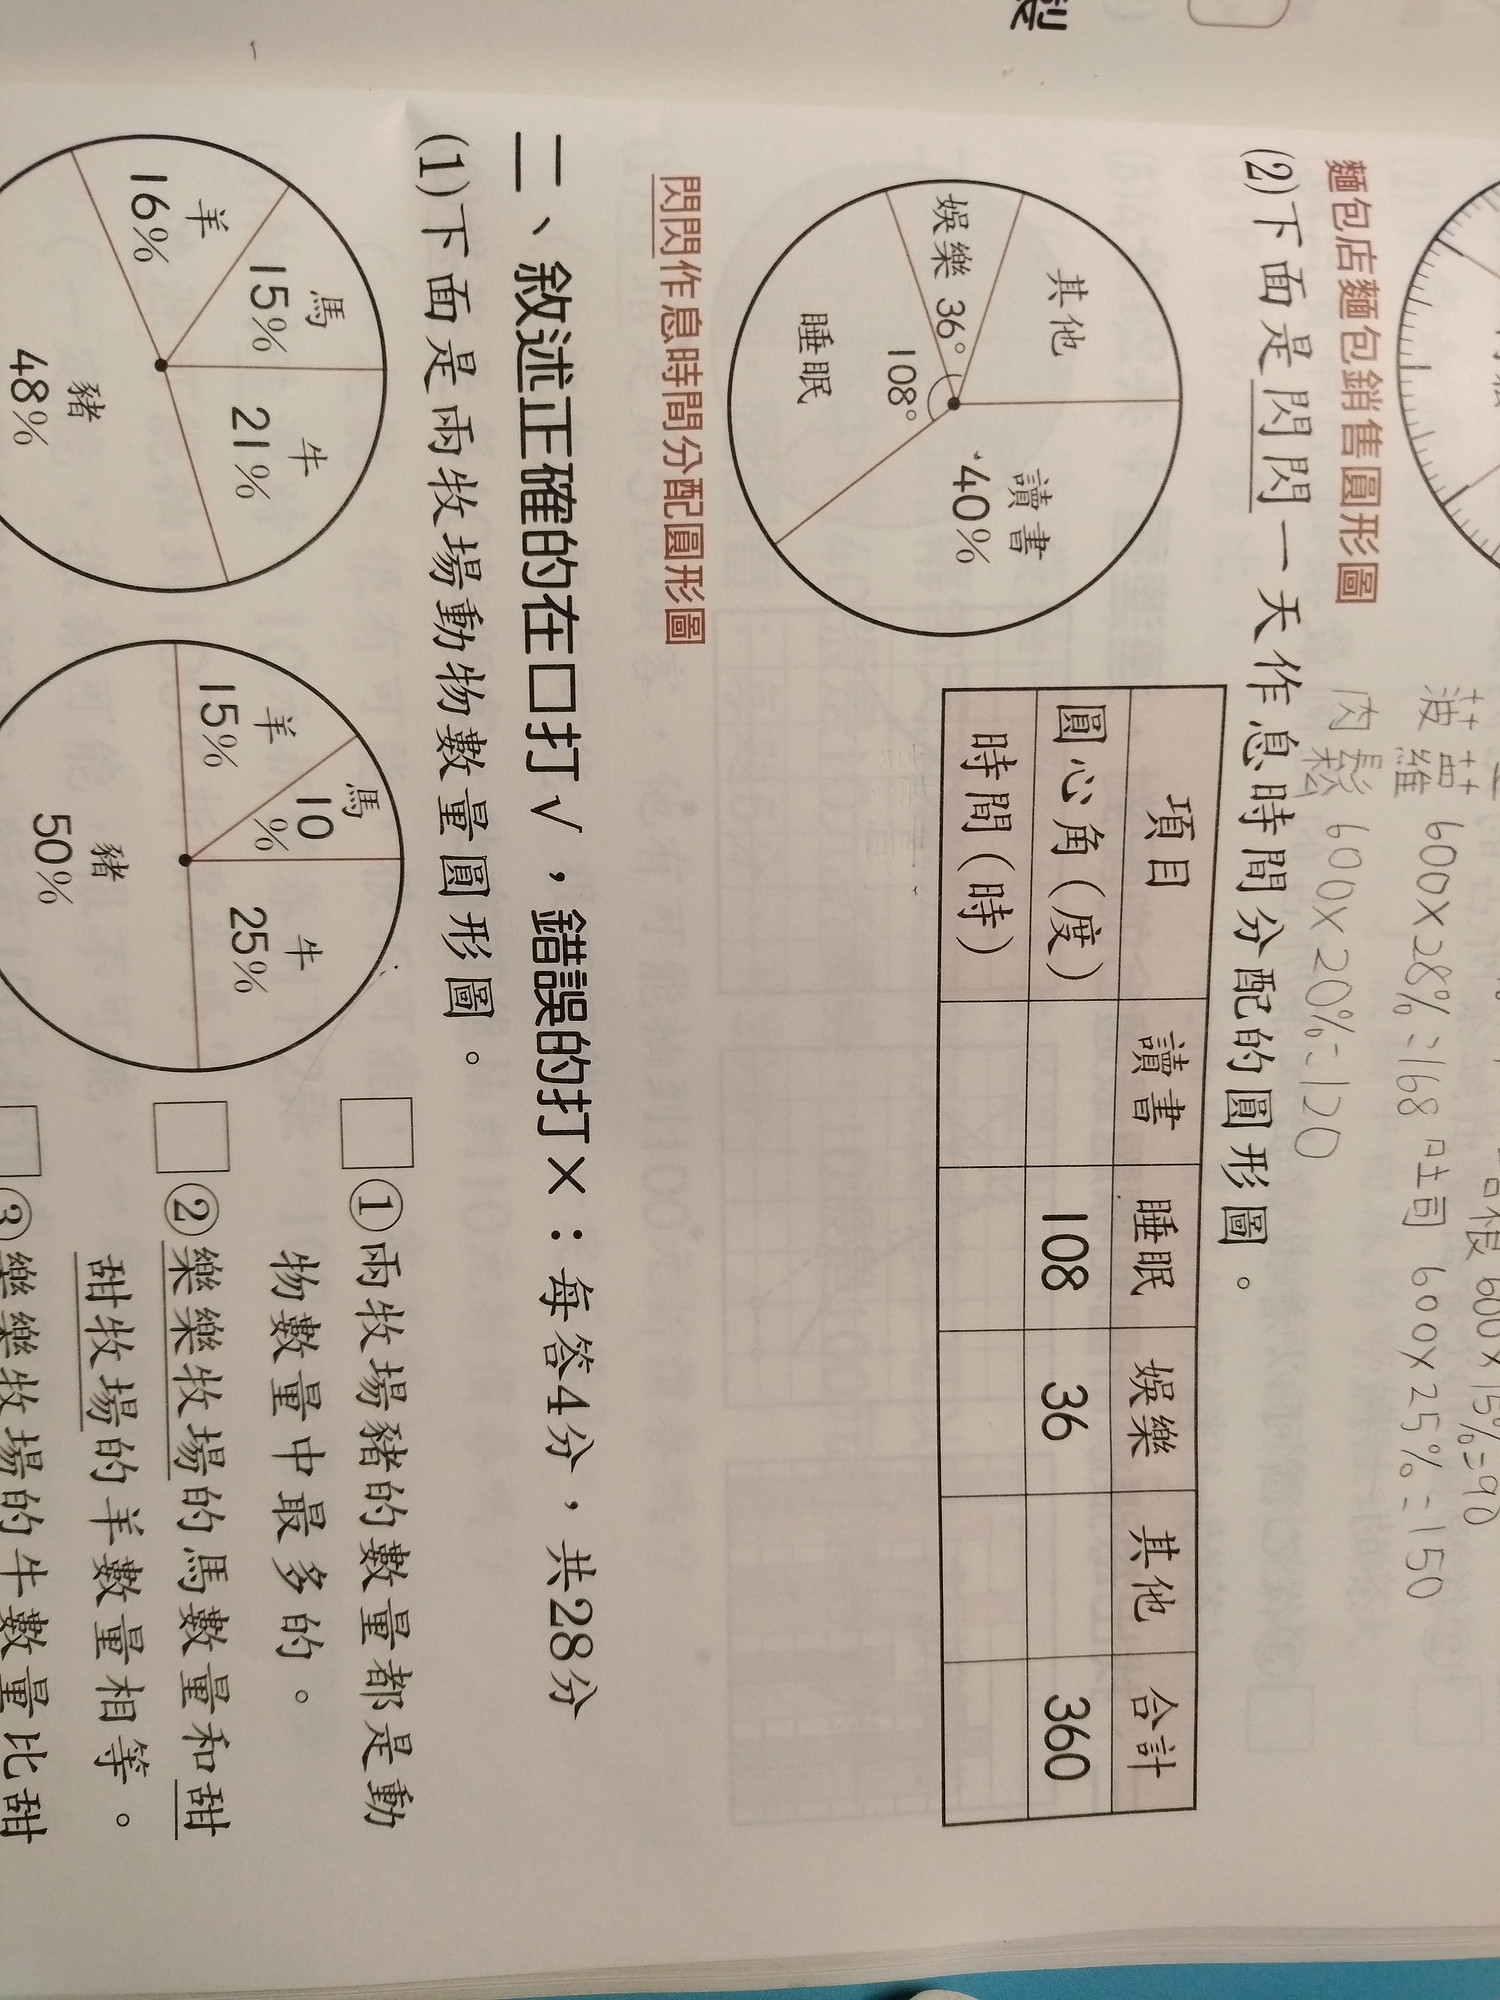 製
菠蘿 600×28%=168 吐司 600×25%=150
肉鬆 600×20%=120
600×15%=90
麵包店麵包銷售圓形圖
(2)下面是閃閃一天作息時間分配的圓形圖。
其他
娛樂 36°
108°
睡眠
讀書
40%
閃閃作息時間分配圓形圖
項目 讀書 睡眠 娛樂 其他 合計
圓心角(度) 108 36 360
時間(時)
二、敘述正確的在□打√,錯誤的打×:每答4分,共28分
(1)下面是兩牧場動物數量圓形圖。
馬
15%
牛
21%
羊
16%
豬
48%
馬
10
%
羊
15%
牛
25%
豬
50%
□①兩牧場豬的數量都是動
物數量中最多的。
□②樂樂牧場的馬數量和甜
甜牧場的羊數量相等。
□③樂樂牧場的牛數量比甜